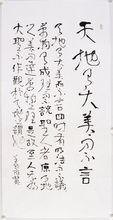 天地有大美而不言
天地有大美而不言四时有明法而不議
萬物有成理而不說聖人者原天地
之美而達萬物之理是故至人無為
大聖不作觀於天地之謂也